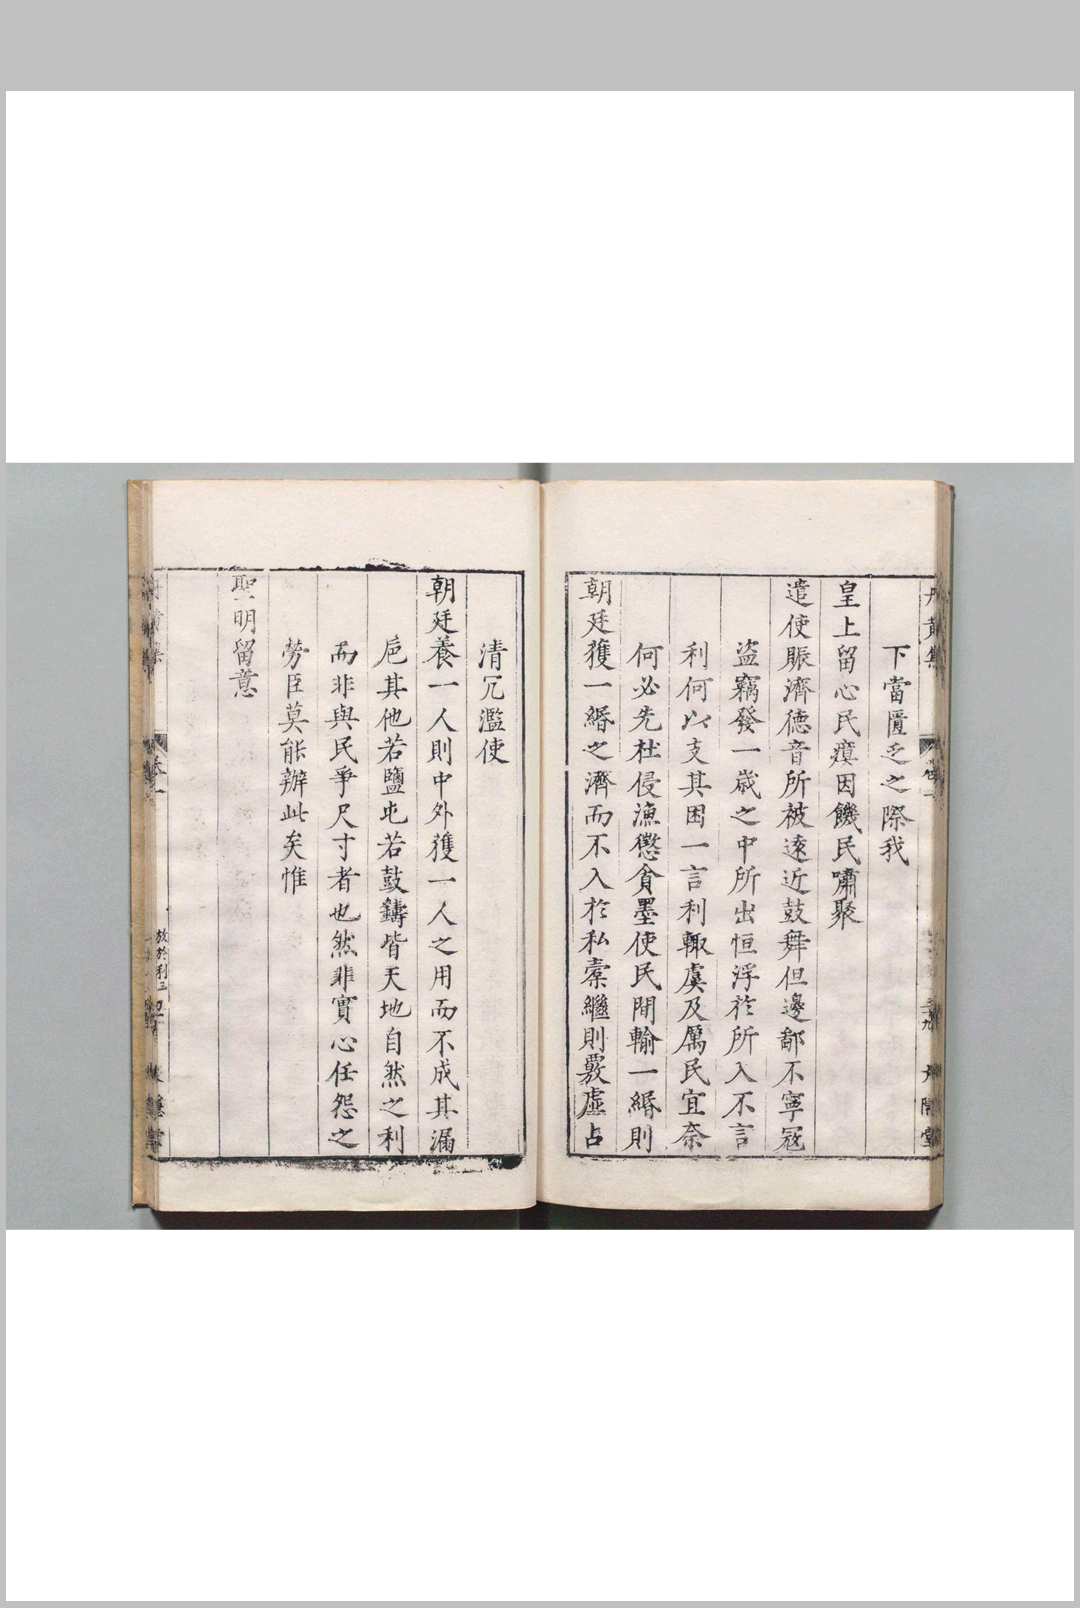 下當匱乏之際我
皇上留心民瘼因饑民嘯聚
遣使賑濟德音所被遠近鼓舞但邊鄙不寧寇
盜竊發一歲之中所出恒浮於所入不言
利何以支其困一言利輙虞及厲民宜柰
何必先杜侵漁懲貪墨使民間輸一緡則
朝廷獲一緡之濟而不入於私橐繼則覈虛占
清冗濫使
朝廷養一人則中外獲一人之用而不成其漏
巵其他若鹽屯若鼓鑄皆天地自然之利
而非與民爭尺寸者也然非實心任怨之
勞臣莫能辦此矣惟
聖明留意